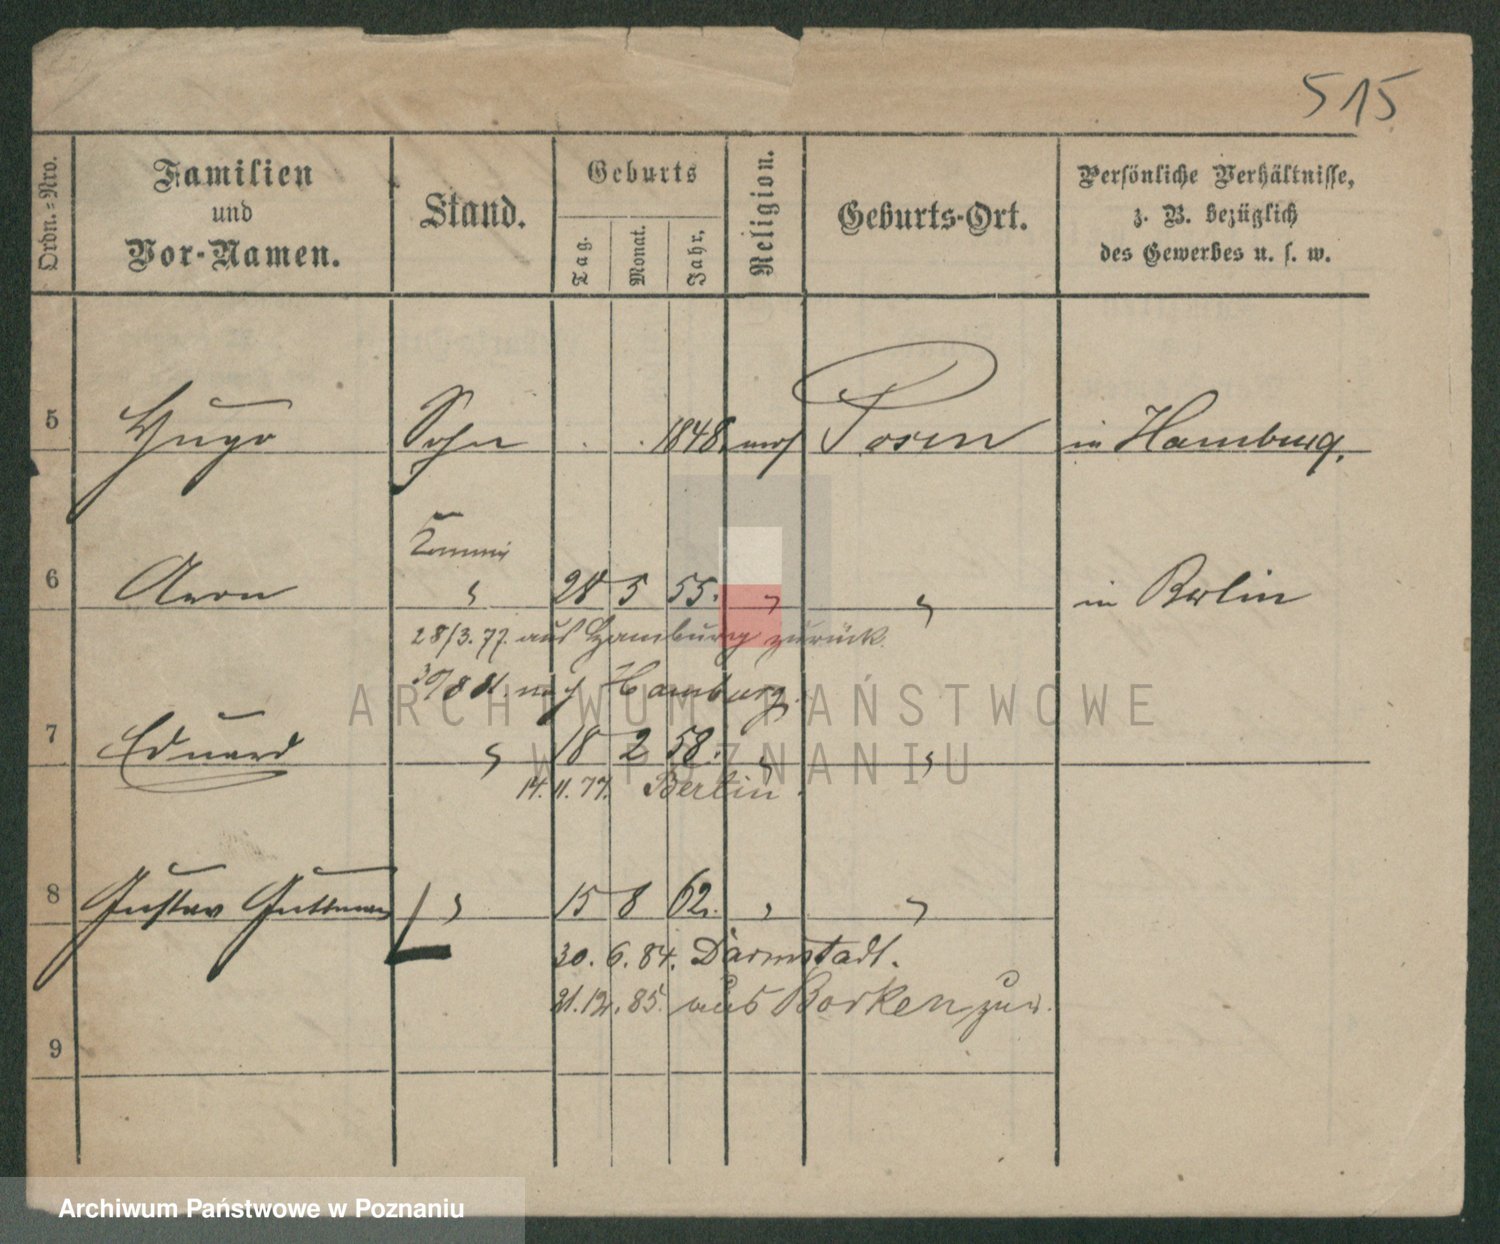 515
Ordn.-Nro.
Familien
und
Vor-Namen.
Stand.
Geburts
Tag.
Monat.
Jahr.
Religion.
Geburts-Ort.
Persönliche Verhältnisse,
z. B. bezüglich
des Gewerbes u. s. w.
5 Hugo Sohn 1848. mos Posen in Hamburg.
Commis
6 Aron " 28 5 55. " " in Berlin
28/3. 77. aus Hamburg zurück.
30/8 81. nach Hamburg.
7 Eduard " 18 2 58. " "
14. 11. 77. Berlin.
8 Gustav Guttmann " 15 8 62. " "
30. 6. 84. Darmstadt.
21. 12. 85. aus Borken zur.
9
ARCHIWUM PAŃSTWOWE
W POZNANIU
Archiwum Państwowe w Poznaniu